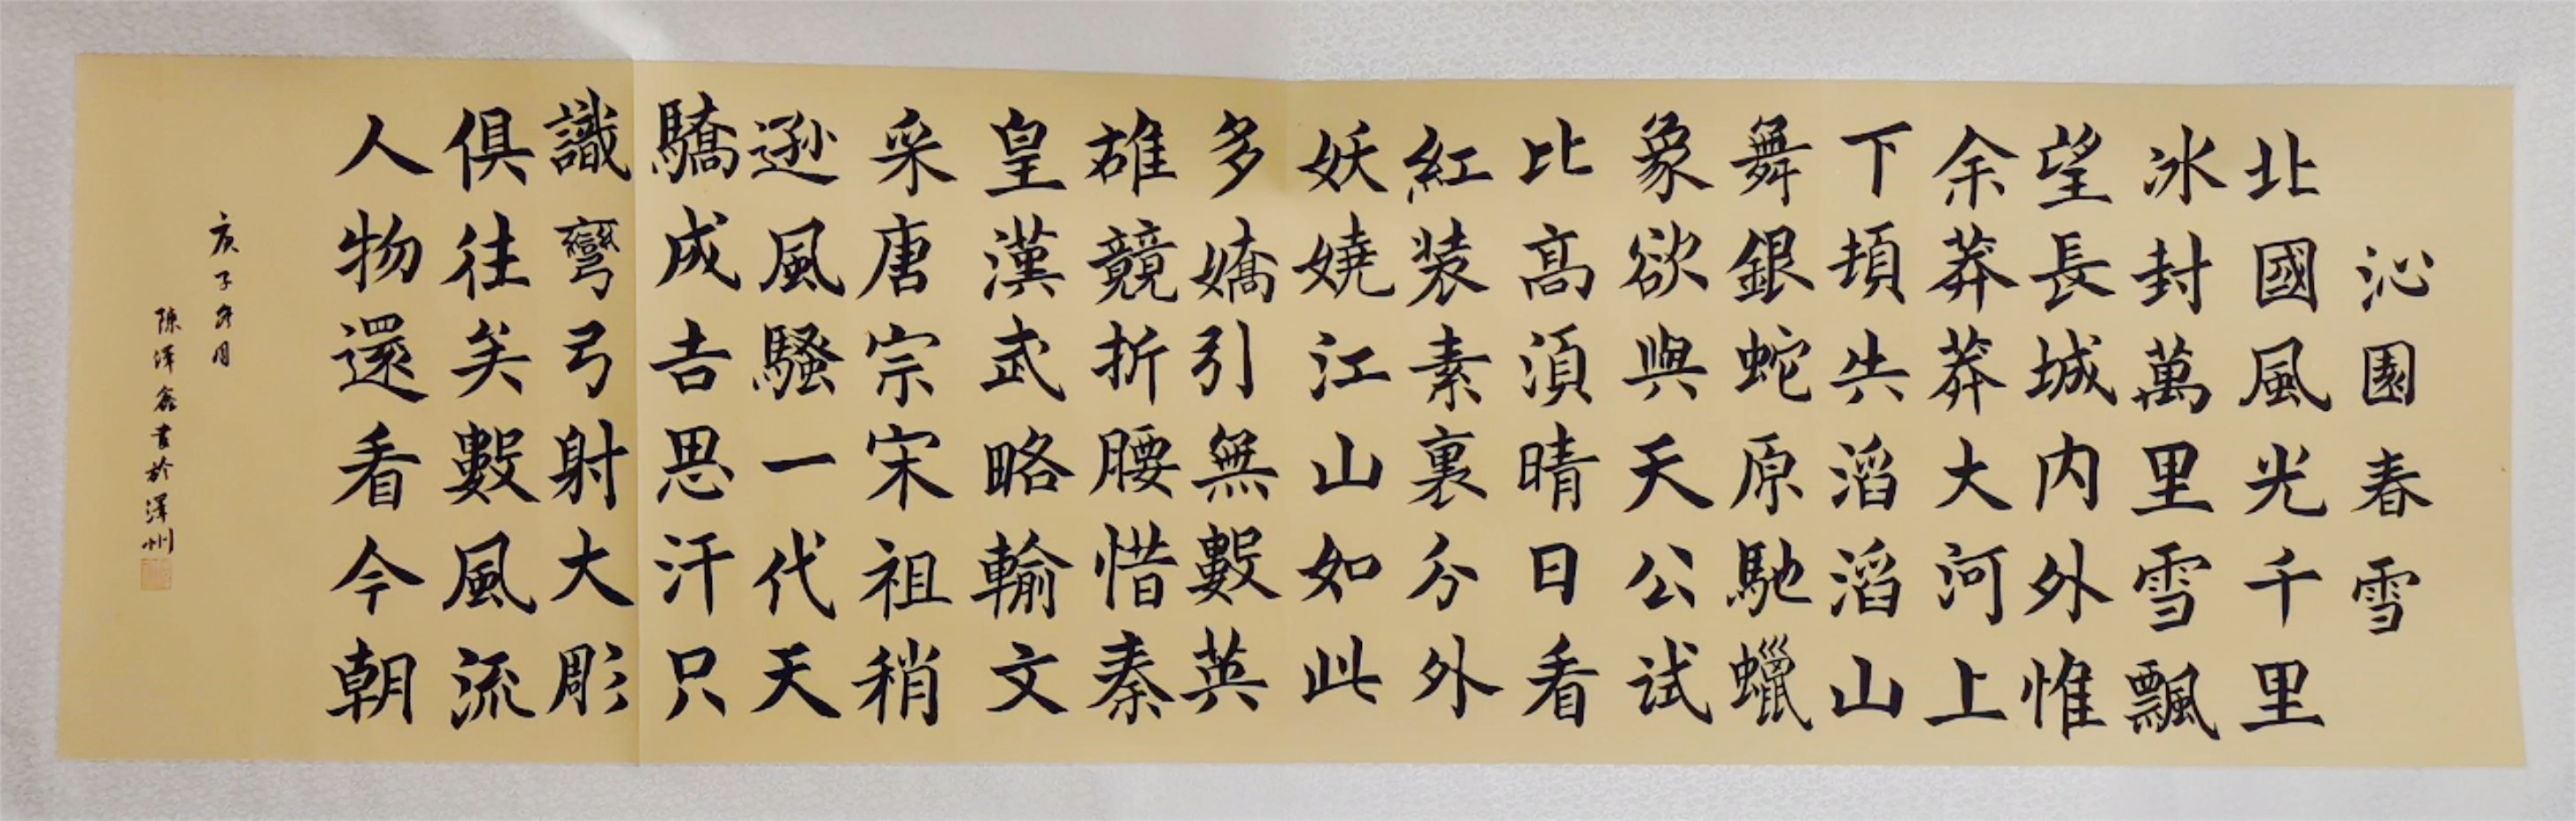 沁園春雪
北國風光千里
冰封萬里雪飄
望長城内外惟
余莽莽大河上
下頓失滔滔山
舞銀蛇原馳蠟
象欲與天公試
比高須晴日看
紅装素裏分外
妖嬈江山如此
多嬌引無數英
雄競折腰惜秦
皇漢武略輸文
采唐宗宋祖稍
遜風騷一代天
驕成吉思汗只
識彎弓射大彫
俱往矣數風流
人物還看今朝
庚子冬月
陳澤鑫書於澤州